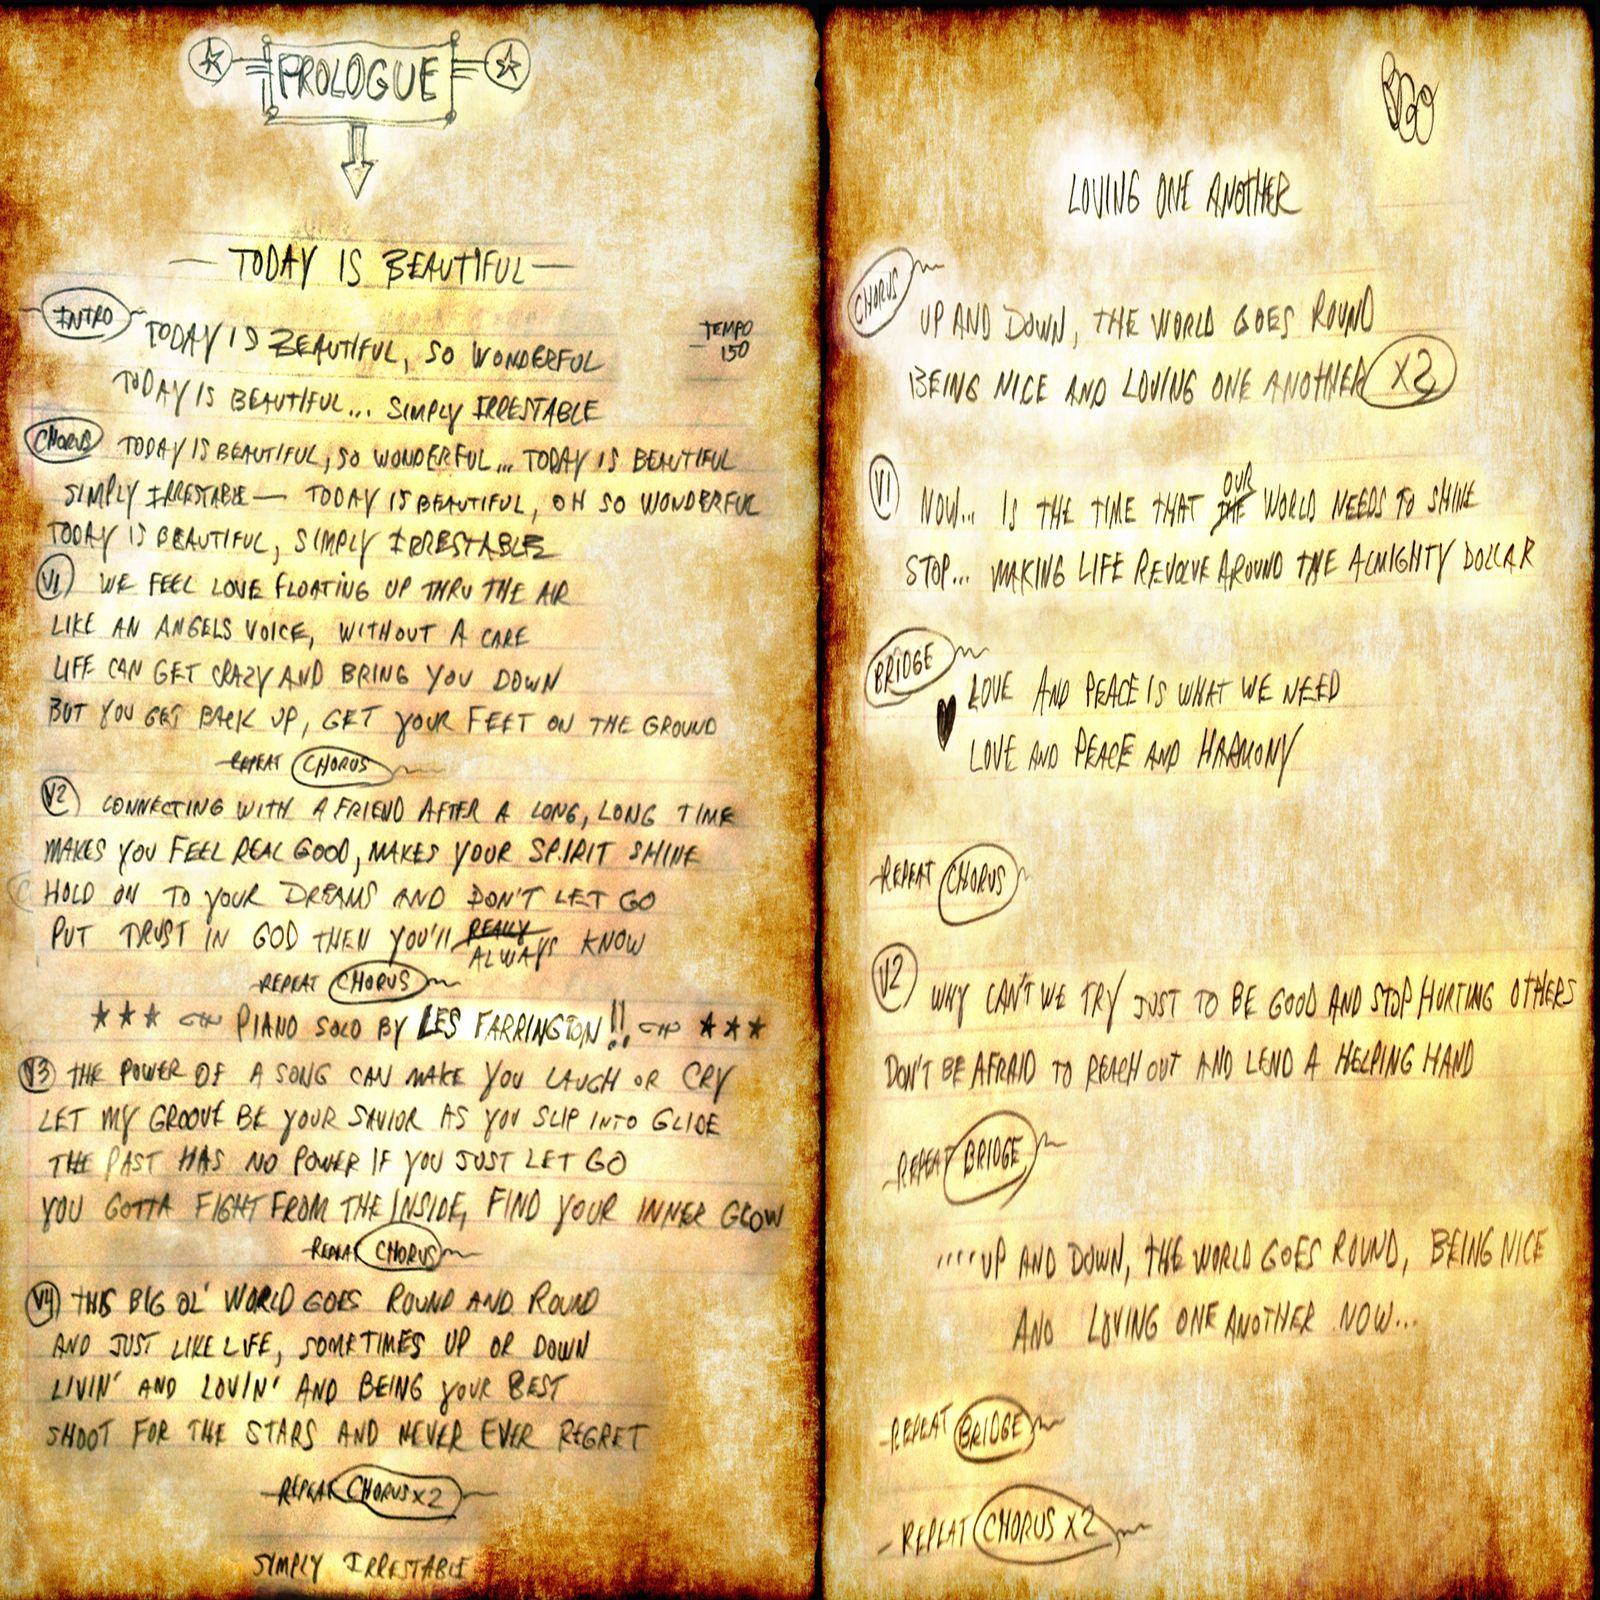 PROLOGUE
— TODAY IS BEAUTIFUL —
INTRO TODAY IS BEAUTIFUL, SO WONDERFUL
TEMPO
150
TODAY IS BEAUTIFUL... SIMPLY IRRESTABLE
CHORUS TODAY IS BEAUTIFUL, SO WONDERFUL... TODAY IS BEAUTIFUL
SIMPLY IRRESTABLE — TODAY IS BEAUTIFUL, OH SO WONDERFUL
TODAY IS BEAUTIFUL, SIMPLY IRRESTABLE
V1 WE FEEL LOVE FLOATING UP THRU THE AIR
LIKE AN ANGELS VOICE, WITHOUT A CARE
LIFE CAN GET CRAZY AND BRING YOU DOWN
BUT YOU GET BACK UP, GET YOUR FEET ON THE GROUND
REPEAT CHORUS
V2 CONNECTING WITH A FRIEND AFTER A LONG, LONG TIME
MAKES YOU FEEL REAL GOOD, MAKES YOUR SPIRIT SHINE
HOLD ON TO YOUR DREAMS AND DON'T LET GO
PUT TRUST IN GOD THEN YOU'll REALLY KNOW
ALWAYS
REPEAT CHORUS
★★★ PIANO SOLO BY LES FARRINGTON!! ★★★
V3 THE POWER OF A SONG CAN MAKE YOU LAUGH OR CRY
LET MY GROOVE BE YOUR SAVIOR AS YOU SLIP INTO GLIDE
THE PAST HAS NO POWER IF YOU JUST LET GO
YOU GOTTA FIGHT FROM THE INSIDE, FIND YOUR INNER GLOW
REPEAT CHORUS
V4 THIS BIG OL' WORLD GOES ROUND AND ROUND
AND JUST LIKE LIFE, SOMETIMES UP OR DOWN
LIVIN' AND LOVIN' AND BEING YOUR BEST
SHOOT FOR THE STARS AND NEVER EVER REGRET
REPEAT CHORUS X2
SIMPLY IRRESTABLE
LOVING ONE ANOTHER
CHORUS UP AND DOWN, THE WORLD GOES ROUND
BEING NICE AND LOVING ONE ANOTHER X2
OUR
V1 NOW... IS THE TIME THAT THE WORLD NEEDS TO SHINE
STOP... MAKING LIFE REVOLVE AROUND THE ALMIGHTY DOLLAR
BRIDGE LOVE AND PEACE IS WHAT WE NEED
♥ LOVE AND PEACE AND HARMONY
REPEAT CHORUS
V2 WHY CAN'T WE TRY JUST TO BE GOOD AND STOP HURTING OTHERS
DON'T BE AFRAID TO REACH OUT AND LEND A HELPING HAND
REPEAT BRIDGE
....UP AND DOWN, THE WORLD GOES ROUND, BEING NICE
AND LOVING ONE ANOTHER NOW...
REPEAT BRIDGE
REPEAT CHORUS X2